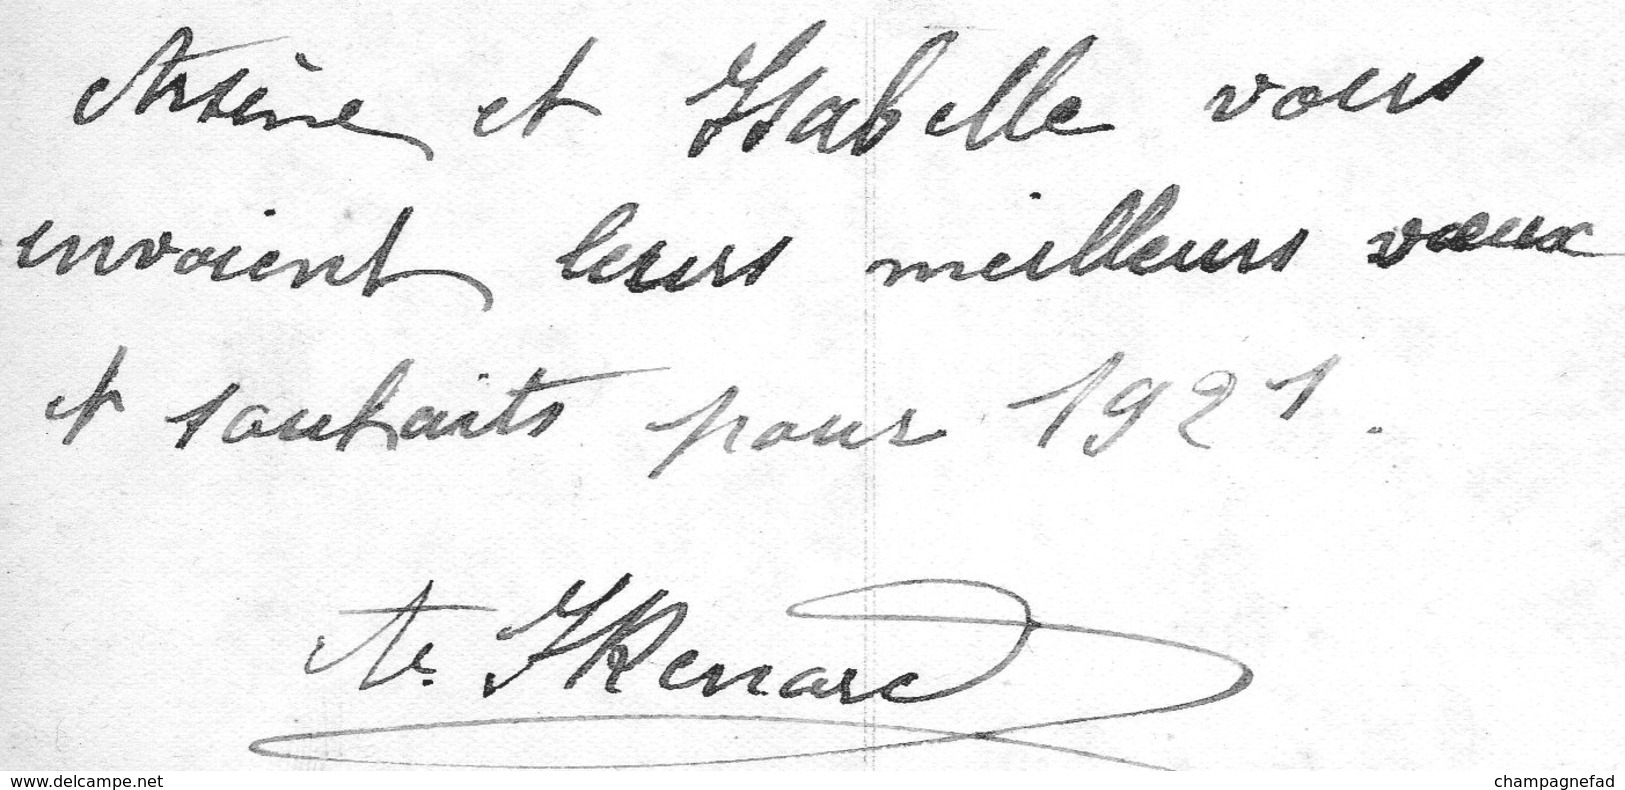 Arsène et Isabelle vous
envoient leurs meilleurs vœux
et souhaits pour 1921.
A. I Renard
www.delcampe.net
champagnefad